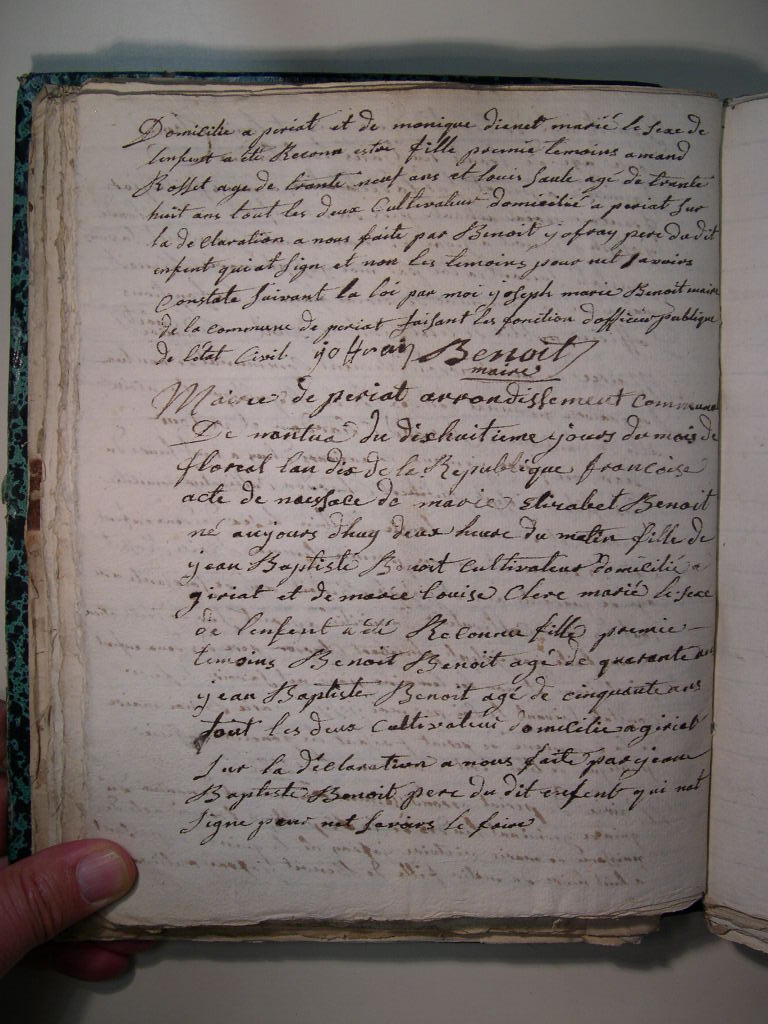 Domicilie a periat et de monique dienet marié le sexe de
lenfent a été Reconu estre fille premie temoins amand
Rosset age de trante neuf ans et louis saule agé de trante
huit ans tout les deux Cultivateur domicilié a periat sur
la declaration a nous faite par Benoit yofray pere du dit
enfent qui at sign et non les temoins pour net savoirs
Constate suivant la loi par moi yoseph marie Benoit maire
de la commune de periat faisant les fonction dofficier publique
de letat Civil yoffray Benoit
maire
Mairee de periat arrondissement Communa
De nantua du dixhuitieme yours du mois de
floreal lan dix de la Republique francoise
acte de naissace de marie Elizabet Benoit
né auyours dhuy deux heure du matin fille de
yean Baptiste Benoit Cultivateur domicilié a
giriat et de marie louise Clerc marié le sexe
de lenfent a été Reconnu fille premie
temoins Benoit Benoit agé de quarante an
yean Baptiste Benoit agé de cinquante ans
tout les deux Cultivateur domicilie a giriat
sur la déclaration a nous faite par yean
Baptiste Benoit pere du dit enfent qui nat
signe pour net savoirs le faire